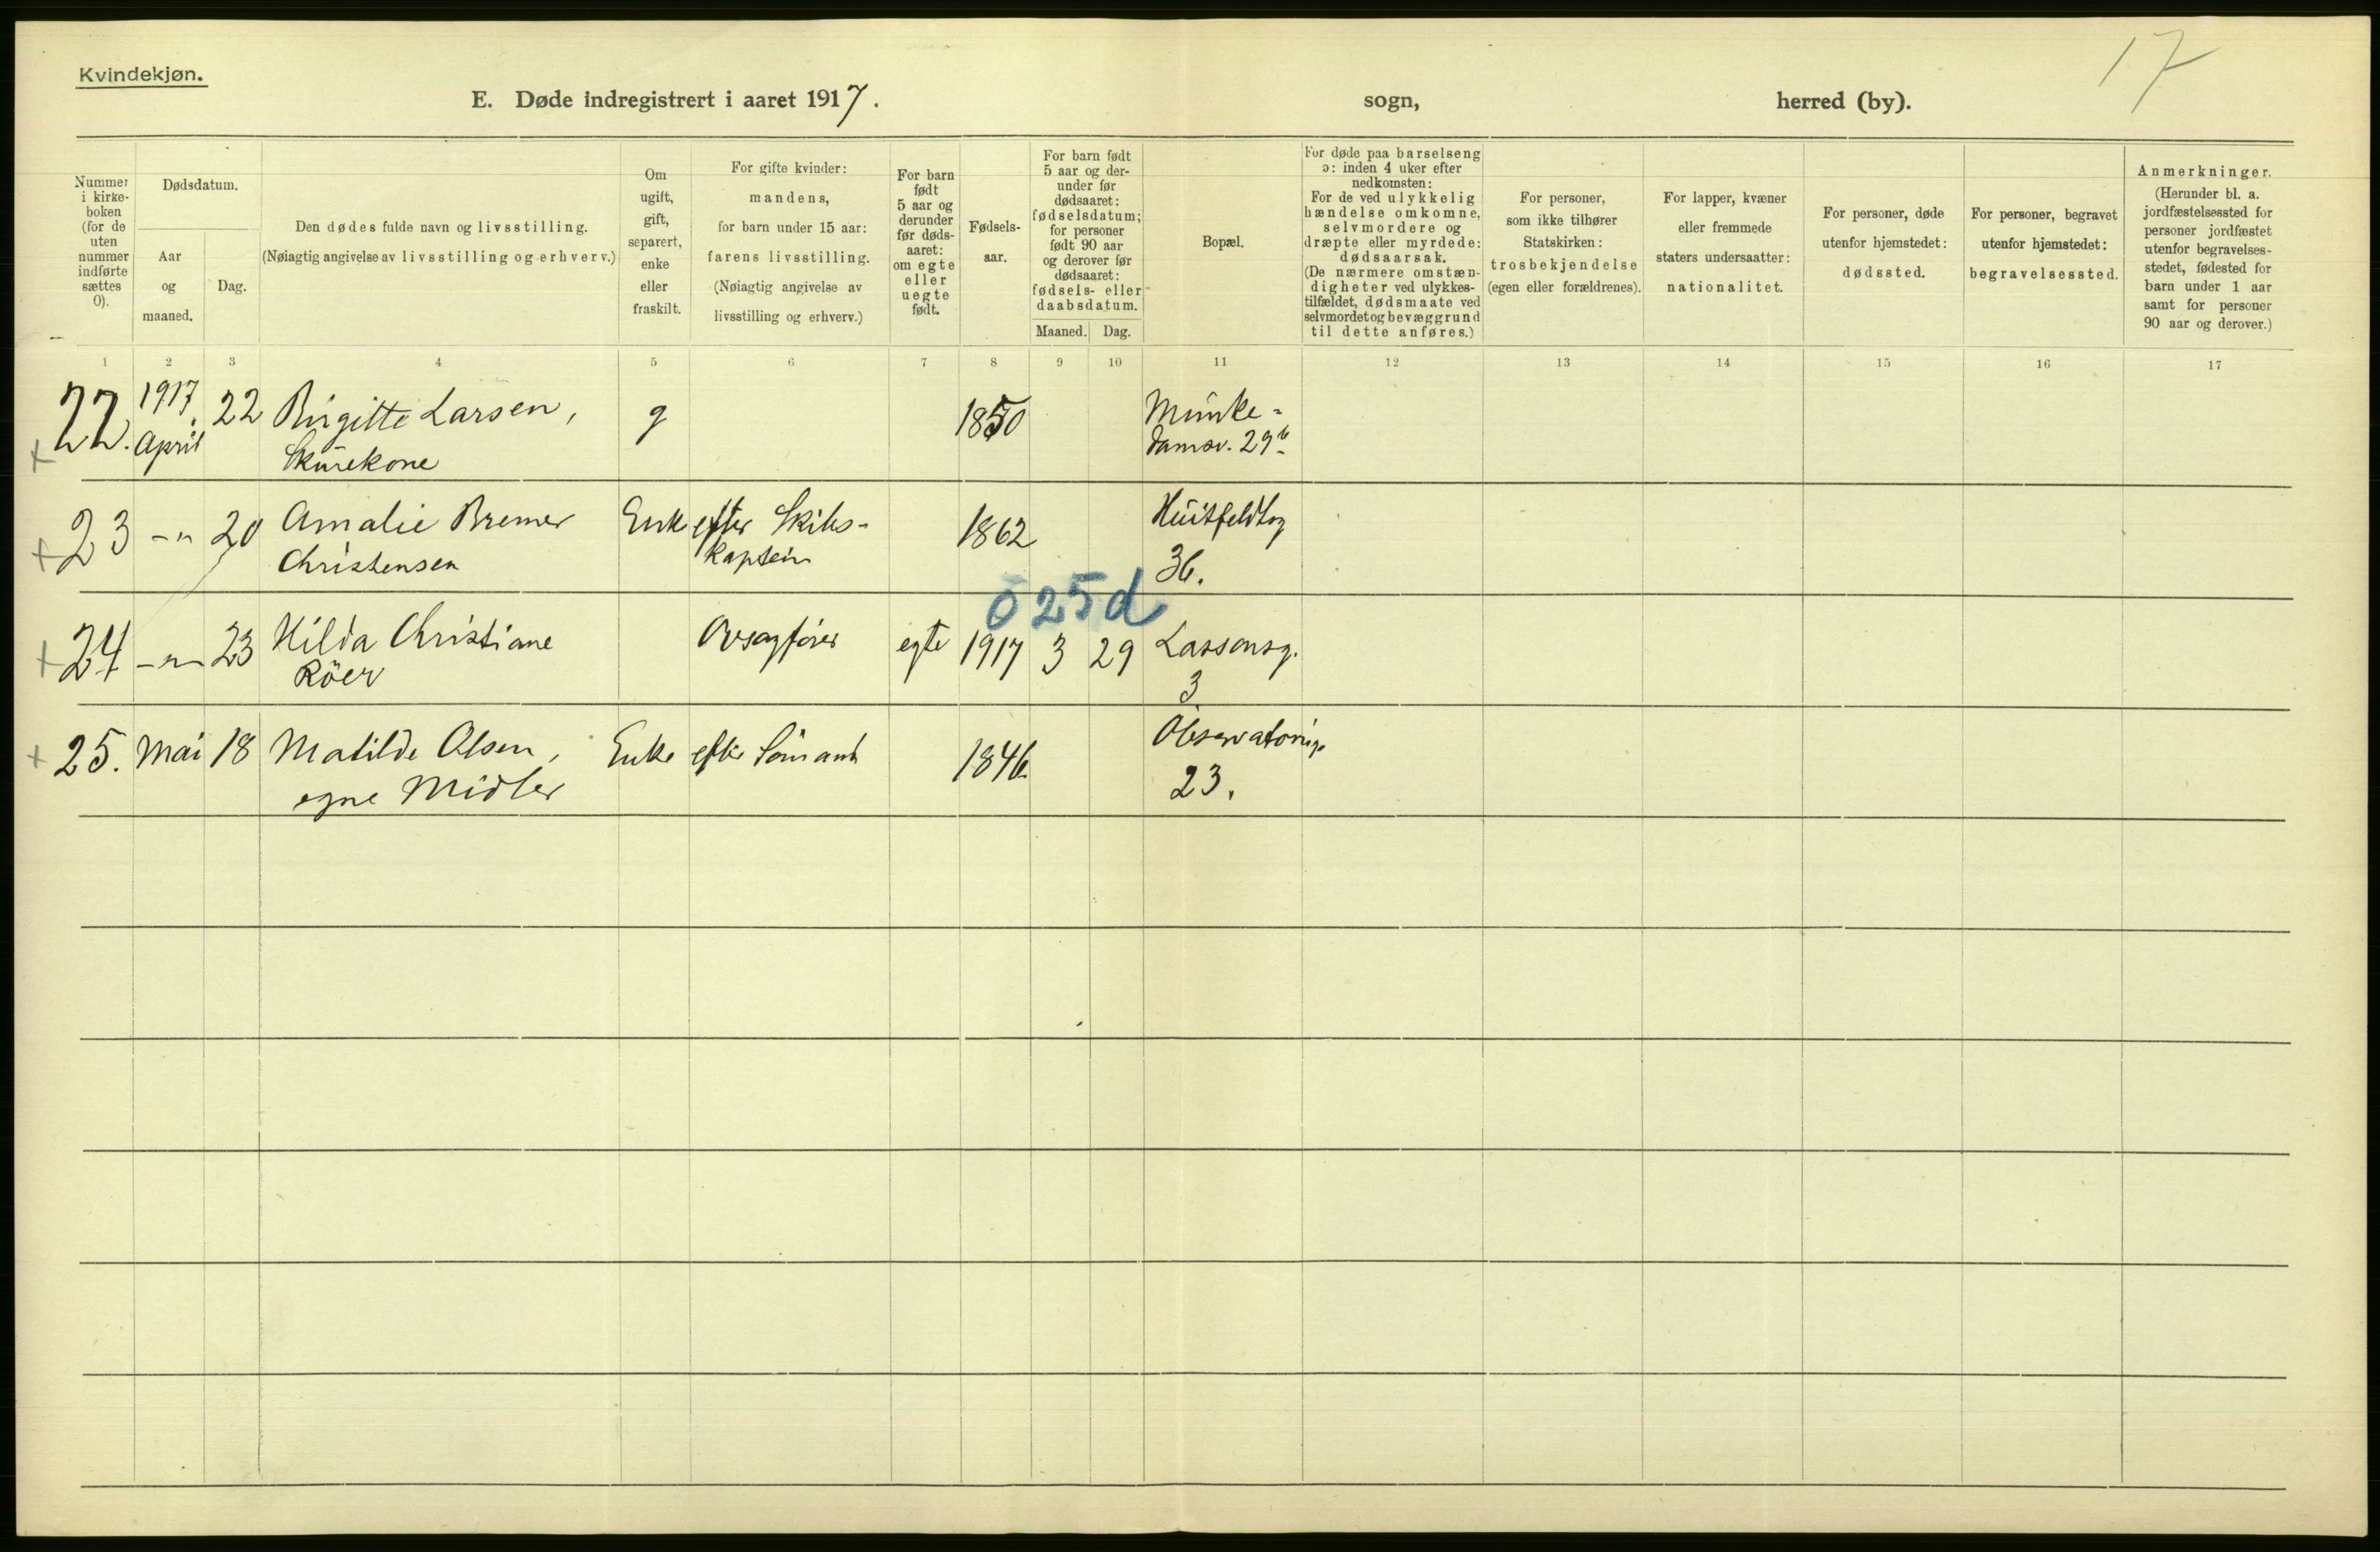 17
Kvindekjøn.
E. Døde indregistrert i aaret 1917. sogn, herred (by).
Nummer
i kirke-
boken
(for de
uten
nummer
indførte
sættes
0).
Dødsdatum.
Aar
og
maaned.
Dag.
Den dødes fulde navn og livsstilling.
(Nøiagtig angivelse av livsstilling og erhverv.)
Om
ugift,
gift,
separert,
enke
eller
fraskilt.
For gifte kvinder:
mandens,
for barn under 15 aar:
farens livsstilling.
(Nøiagtig angivelse av
livsstilling og erhverv.)
For barn
født
5 aar og
derunder
før døds-
aaret:
om egte
eller
uegte
født.
Fødsels-
aar.
For barn født
5 aar og der-
under før
dødsaaret:
fødselsdatum;
for personer
født 90 aar
og derover før
dødsaaret:
fødsels- eller
daabsdatum.
Maaned. Dag.
Bopæl.
For døde paa barselseng
ɔ: inden 4 uker efter
nedkomsten:
For de ved ulykkelig
hændelse omkomne,
selvmordere og
dræpte eller myrdede:
dødsaarsak.
(De nærmere omstæn-
digheter ved ulykkes-
tilfældet, dødsmaate ved
selvmordet og bevæggrund
til dette anføres.)
For personer,
som ikke tilhører
Statskirken:
trosbekjendelse
(egen eller forældrenes).
For lapper, kvæner
eller fremmede
staters undersaatter:
nationalitet.
For personer, døde
utenfor hjemstedet:
dødssted.
For personer, begravet
utenfor hjemstedet:
begravelsessted.
Anmerkninger.
(Herunder bl. a.
jordfæstelsessted for
personer jordfæstet
utenfor begravelses-
stedet, fødested for
barn under 1 aar
samt for personer
90 aar og derover.)
1 2 3 4 5 6 7 8 9 10 11 12 13 14 15 16 17
+ 22. 1917 April 22 Birgitte Larsen, g 1850 Munke-
Skurekone damsv. 29b
+ 23 -"- 20 Amalie Bremer Enke efter Skibs- 1862 Huitfeldtsg
Christensen kaptein 36.
025d
+ 24 -"- 23 Hilda Christiane Ovsagfører egte 1917 3 29 Lassonsg.
Röer 3
+ 25. Mai 18 Matilde Olsen, Enke efter Sømand 1846 Observatorieg.
egne Midler 23.